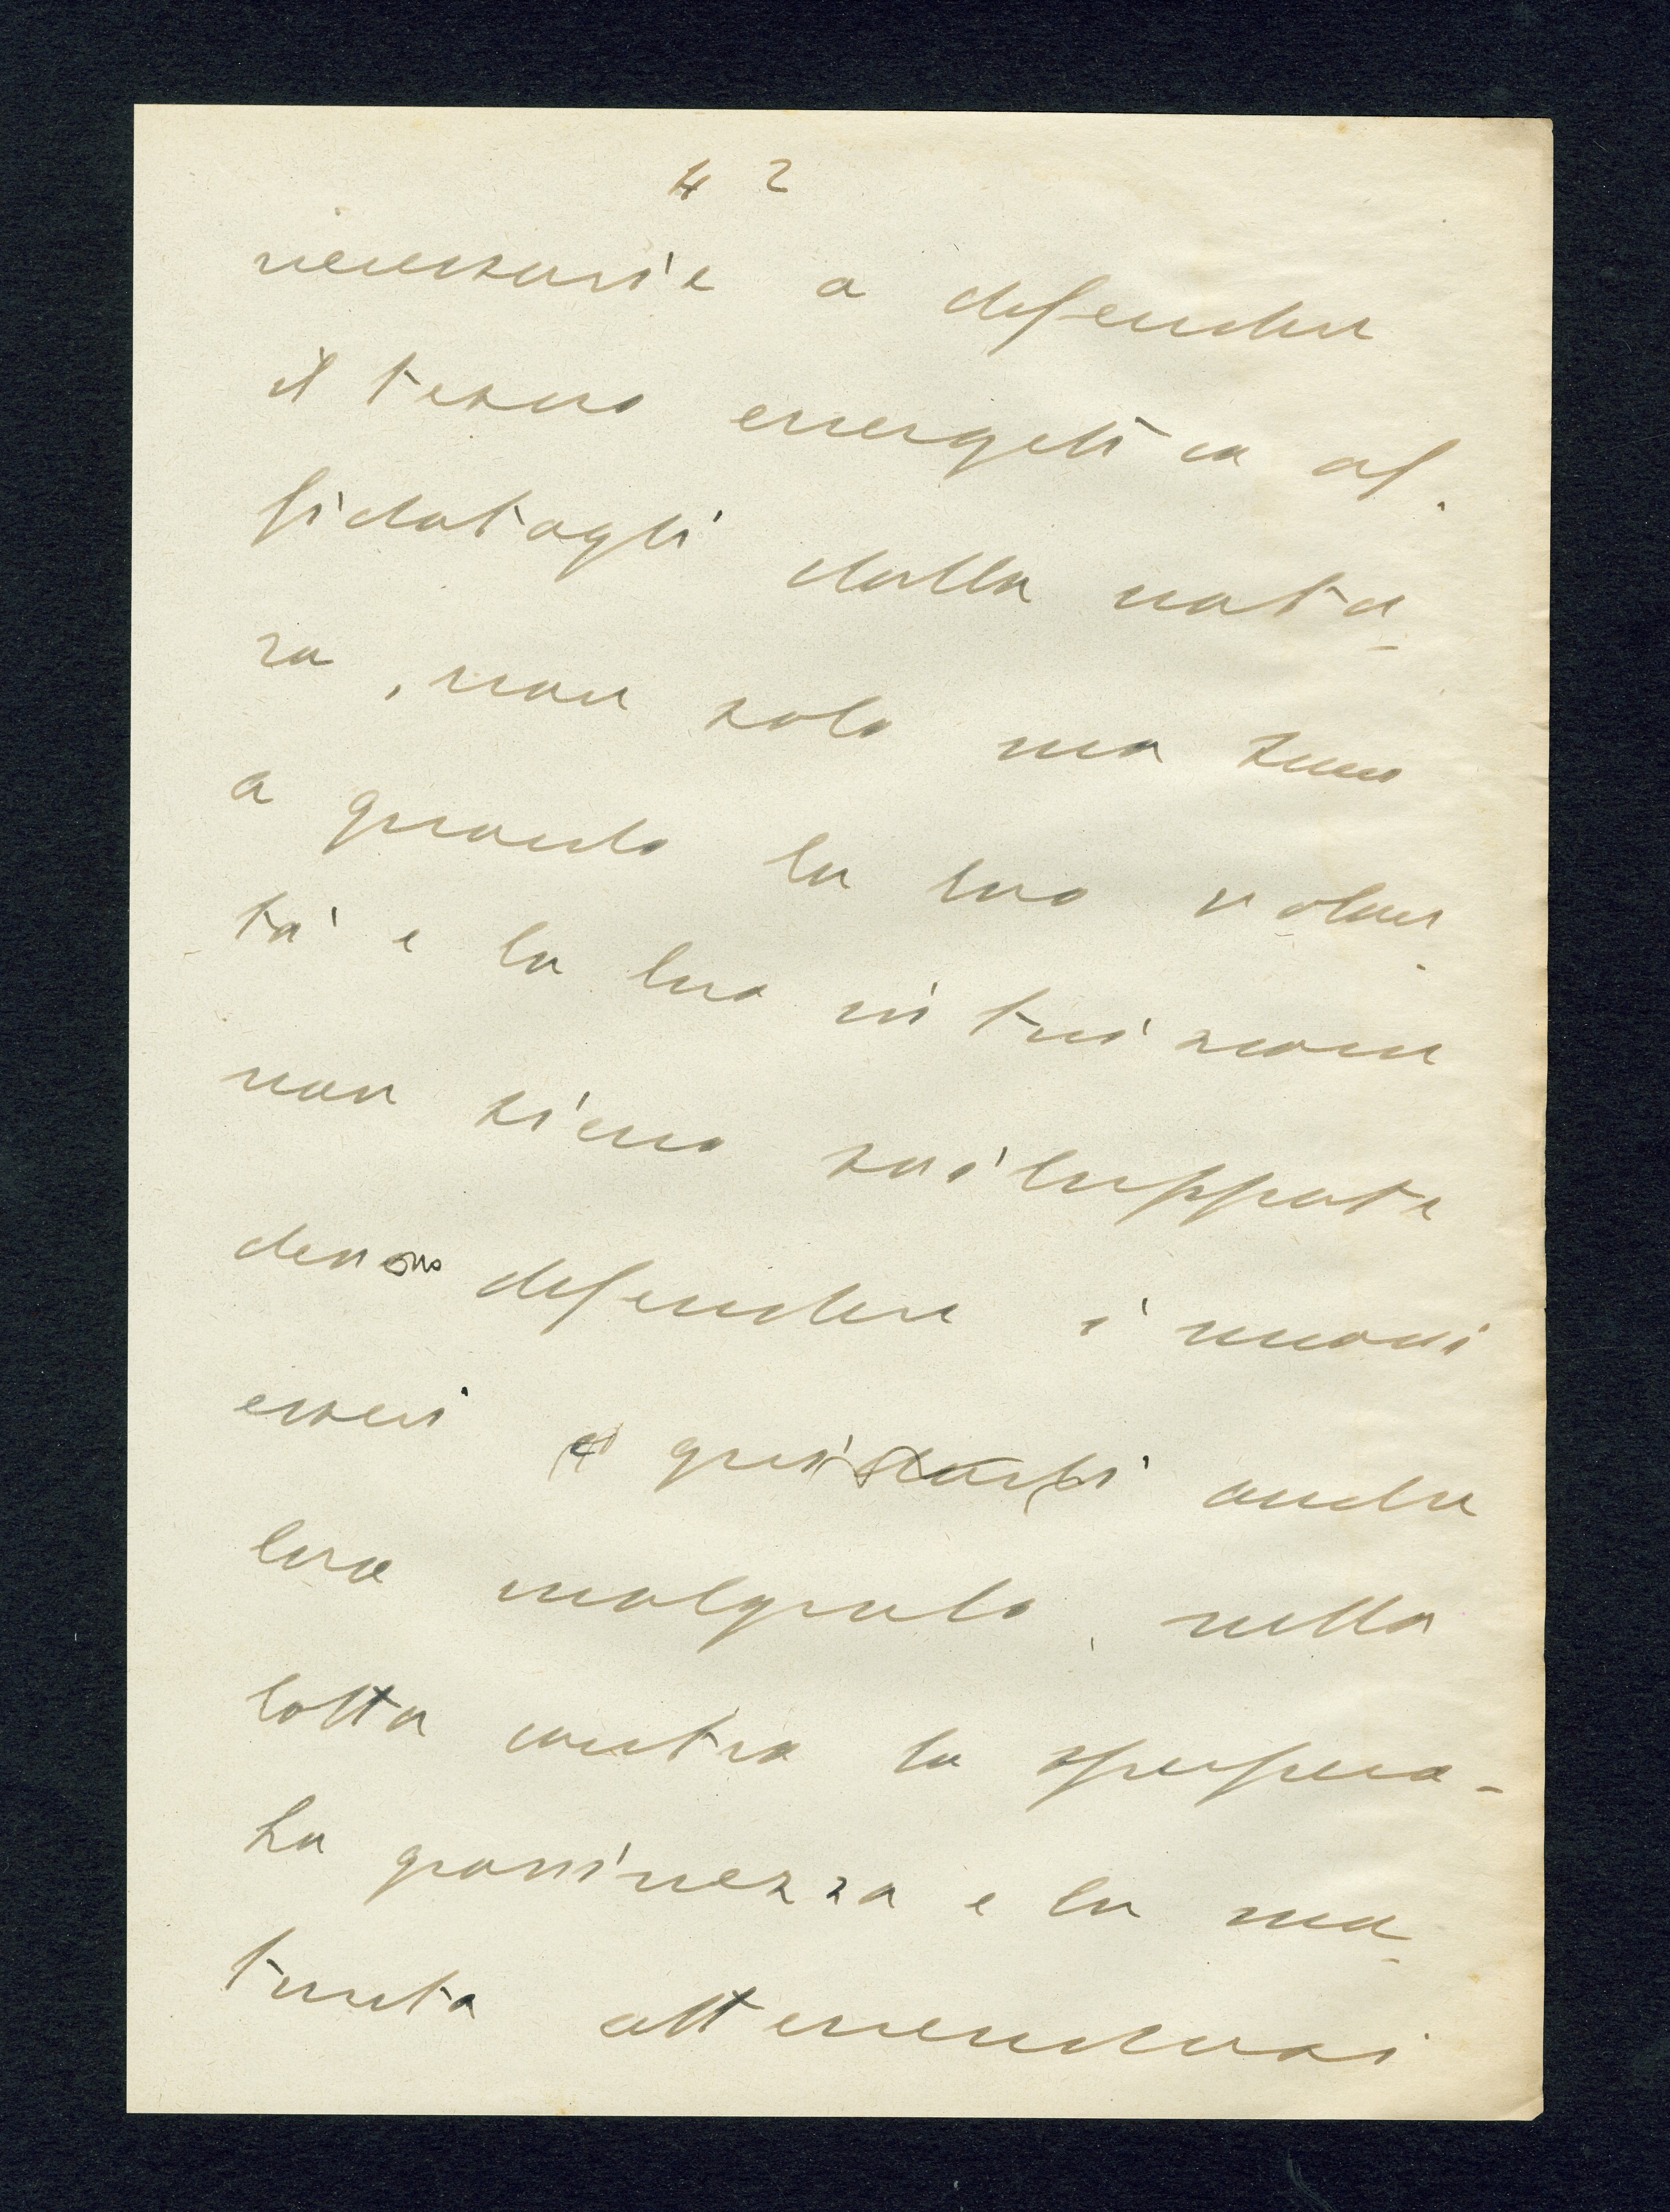 42
necessarie a difendere
il tesoro energetico af-
fidatogli dalla natu-
ra, non solo ma sino
a quando la loro volon-
tà e la loro intuizione
non sieno sviluppate
devono difendere i nuovi
esseri e guidarli anche
loro malgrado, nella
lotta contro la spensiera-
ta giovinezza e la ma-
turità attenendosi